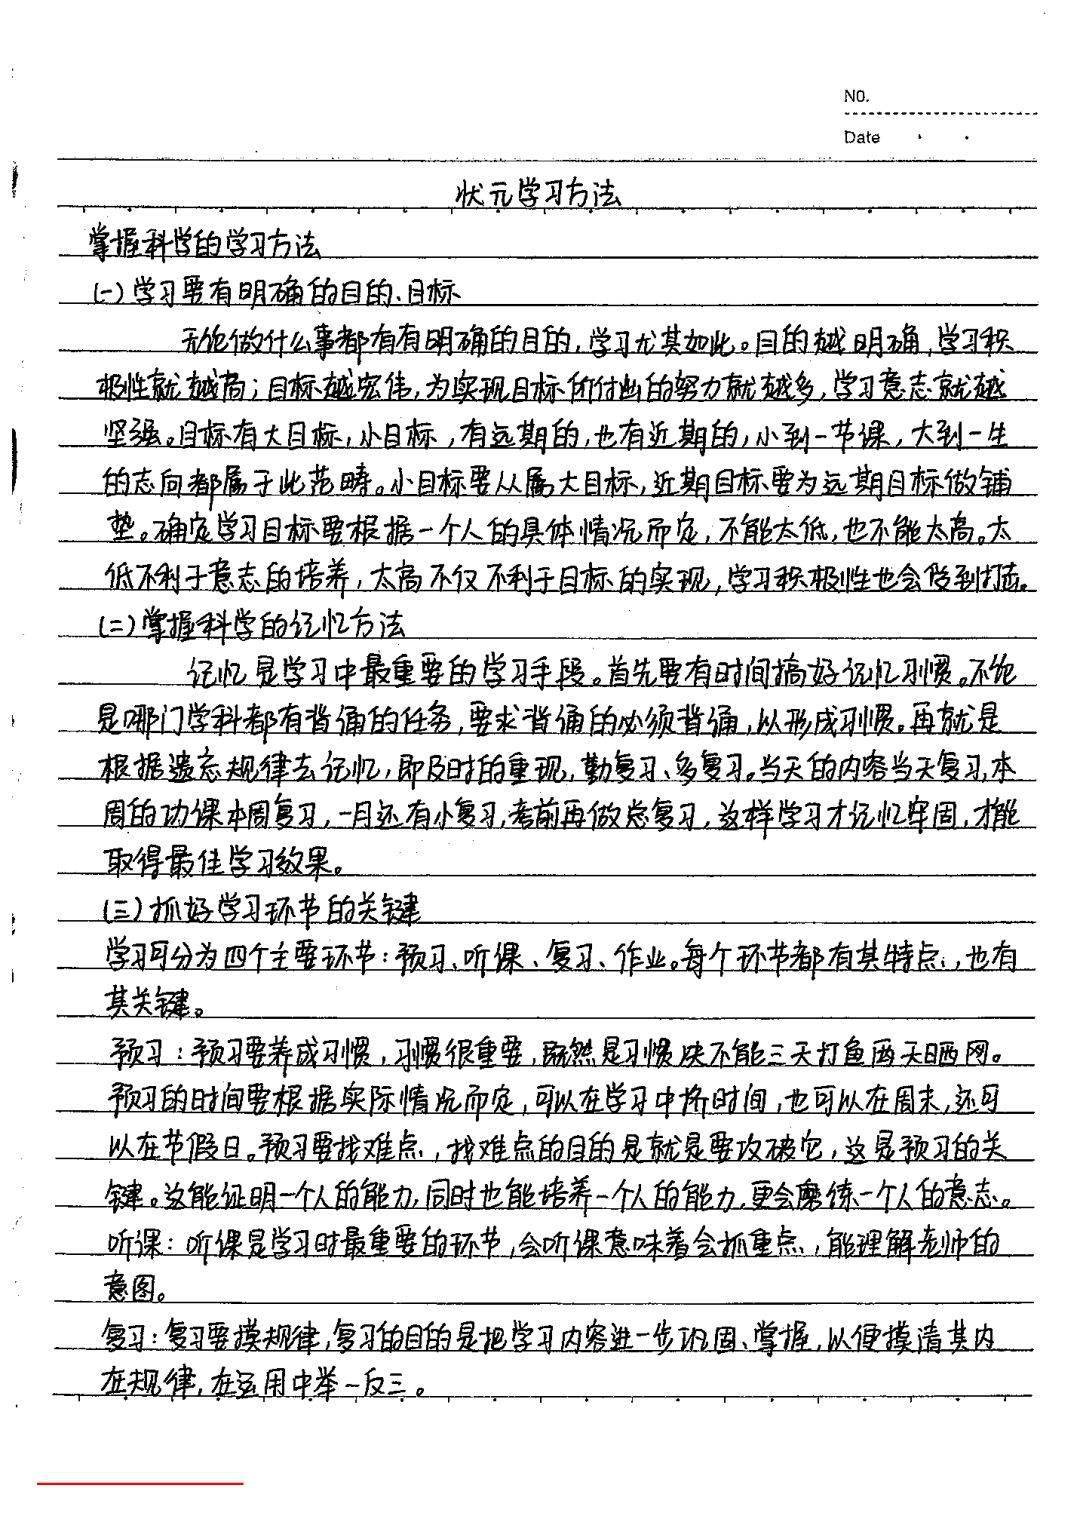 NO.
Date
状元学习方法
掌握科学的学习方法
(一)学习要有明确的目的、目标
无论做什么事都有有明确的目的,学习尤其如此。目的越明确,学习积
极性就越高;目标越宏伟,为实现目标所付出的努力就越多,学习意志就越
坚强。目标有大目标,小目标,有远期的,也有近期的,小到一节课,大到一生
的志向都属于此范畴。小目标要从属大目标,近期目标要为远期目标做铺
垫。确定学习目标要根据一个人的具体情况而定,不能太低,也不能太高。太
低不利于意志的培养,太高不仅不利于目标的实现,学习积极性也会受到打击。
(二)掌握科学的记忆方法
记忆是学习中最重要的学习手段。首先要有时间搞好记忆习惯。不论
是哪门学科都有背诵的任务,要求背诵的必须背诵,以形成习惯。再就是
根据遗忘规律去记忆,即及时的重现,勤复习、多复习。当天的内容当天复习,本
周的功课本周复习,一月还有小复习,考前再做总复习,这样学习才记忆牢固,才能
取得最佳学习效果。
(三)抓好学习环节的关键
学习可分为四个主要环节:预习、听课、复习、作业。每个环节都有其特点,也有
其关键。
预习:预习要养成习惯,习惯很重要,既然是习惯决不能三天打鱼两天晒网。
预习的时间要根据实际情况而定,可以在学习中挤时间,也可以在周末,还可
以在节假日。预习要找难点,找难点的目的是就是要攻破它,这是预习的关
键。这能证明一个人的能力,同时也能培养一个人的能力,更会磨练一个人的意志。
听课:听课是学习时最重要的环节,会听课意味着会抓重点,能理解老师的
意图。
复习:复习要摸规律,复习的目的是把学习内容进一步巩固、掌握,以便摸清其内
在规律,在运用中举一反三。